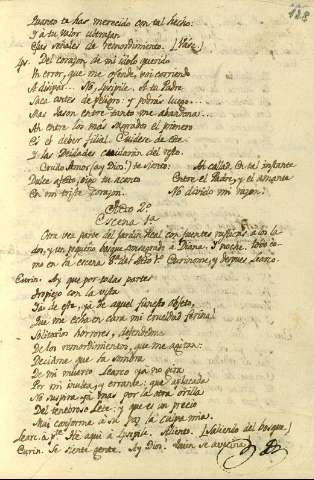 128
Quanto te has merecido con tal hecho:
Y á tu valor usurpar
Esas señales de remordimiento. (Vase)
Yps. Del corazon, de mi idolo querido
Un error, que me ofende, voi corriendo
A disipar... No, Ypsipile. A tu Padre
Saca antes de peligro: y podrás luego...
Mas Jason entre tanto me abandona...
Ah entre los mas sagrados el primero
Es el deber filial. Cuidese de este
Y las Deidades cuidarán del resto.
Crudo Amor, (ay Dios!) te siento; Ah callad. En tal instante
Dulce afecto, oigo tu acento Entre el Padre, y el amante
En mi triste corazon. No divido mi razon.
Acto 2º
Escena 1ª
Otra vez parte del Jardin Real con fuentes rusticas á los la-
dos, y un pequeño bosque consagrado á Diana. Y noche. todo co-
mo en la escena del Acto 1º Eurinome, y despues Learco.
Eurin. Ay que por todas partes
Tropiezo con la vista
Ya de este, ya de aquel funesto objeto,
Que me echa en cara mi crueldad ferina!
Solitarios horrores, defendedme
De los remordimientos, que me agitan:
Decidme que la sombra
De mi muerto Learco ya no gira
Por mi inulta, y errante: que aplacada
No suspira ya mas por la otra orilla
Del tenebroso Lete: y que es un precio
Mui conforme á su paz la culpa mia.
Learc. á pte. Hé aqui á Ypsipile. Aliento. (Saliendo del bosque)
Eurin. Se siente gente. Ay Dios! Quien se avecina?